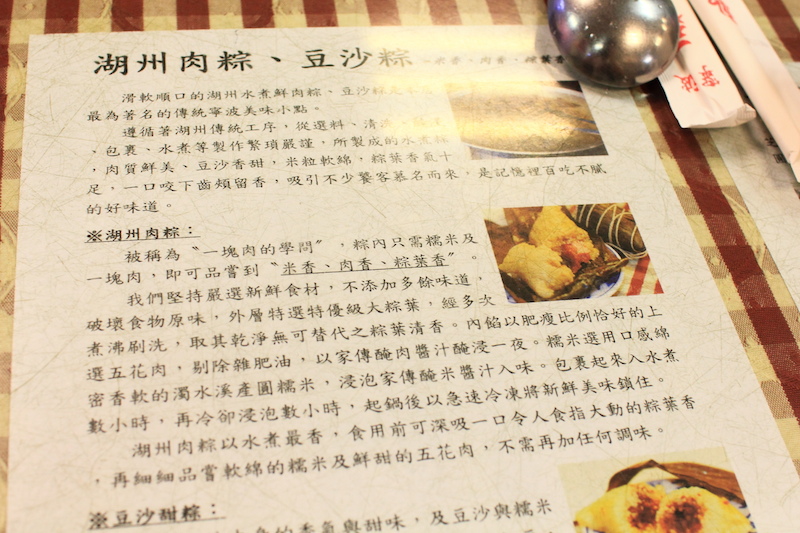 湖州肉粽、豆沙粽 ~米香、肉香、粽葉香
滑軟順口的湖州水煮鮮肉粽、豆沙粽
最為著名的傳統寧波美味小點。
遵循著湖州傳統工序,從選料、清洗
、包裹、水煮等製作繁瑣嚴謹,所製成的水煮粽
,肉質鮮美、豆沙香甜,米粒軟綿,粽葉香氣十
足,一口咬下齒頰留香,吸引不少饕客慕名而來,是記憶裡百吃不膩
的好味道。
※湖州肉粽:
被稱為〝一塊肉的學問〞,粽內只需糯米及
一塊肉,即可品嘗到〝米香、肉香、粽葉香〞。
我們堅持嚴選新鮮食材,不添加多餘味道,
破壞食物原味,外層特選特優級大粽葉,經多次
煮沸刷洗,取其乾淨無可替代之粽葉清香。內餡以肥瘦比例恰好的上
選五花肉,剔除雜肥油,以家傳醃肉醬汁醃浸一夜。糯米選用口感綿
密香軟的濁水溪產圓糯米,浸泡家傳醃米醬汁入味。包裹起來入水煮
數小時,再冷卻浸泡數小時,起鍋後以急速冷凍將新鮮美味鎖住。
湖州肉粽以水煮最香,食用前可深吸一口令人食指大動的粽葉香
,再細細品嘗軟綿的糯米及鮮甜的五花肉,不需再加任何調味。
※豆沙甜粽:
的香氣與甜味,及豆沙與糯米
寧波